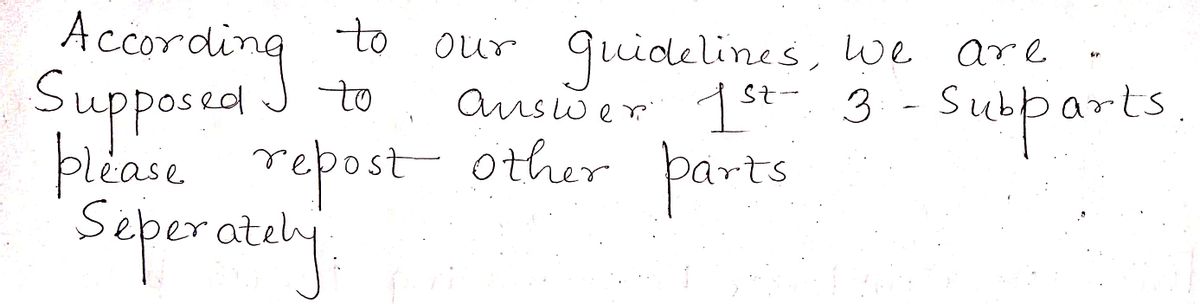 According to our guidelines, we are
Supposed to answer 1st 3 - Subparts.
please repost other parts
Seperately.